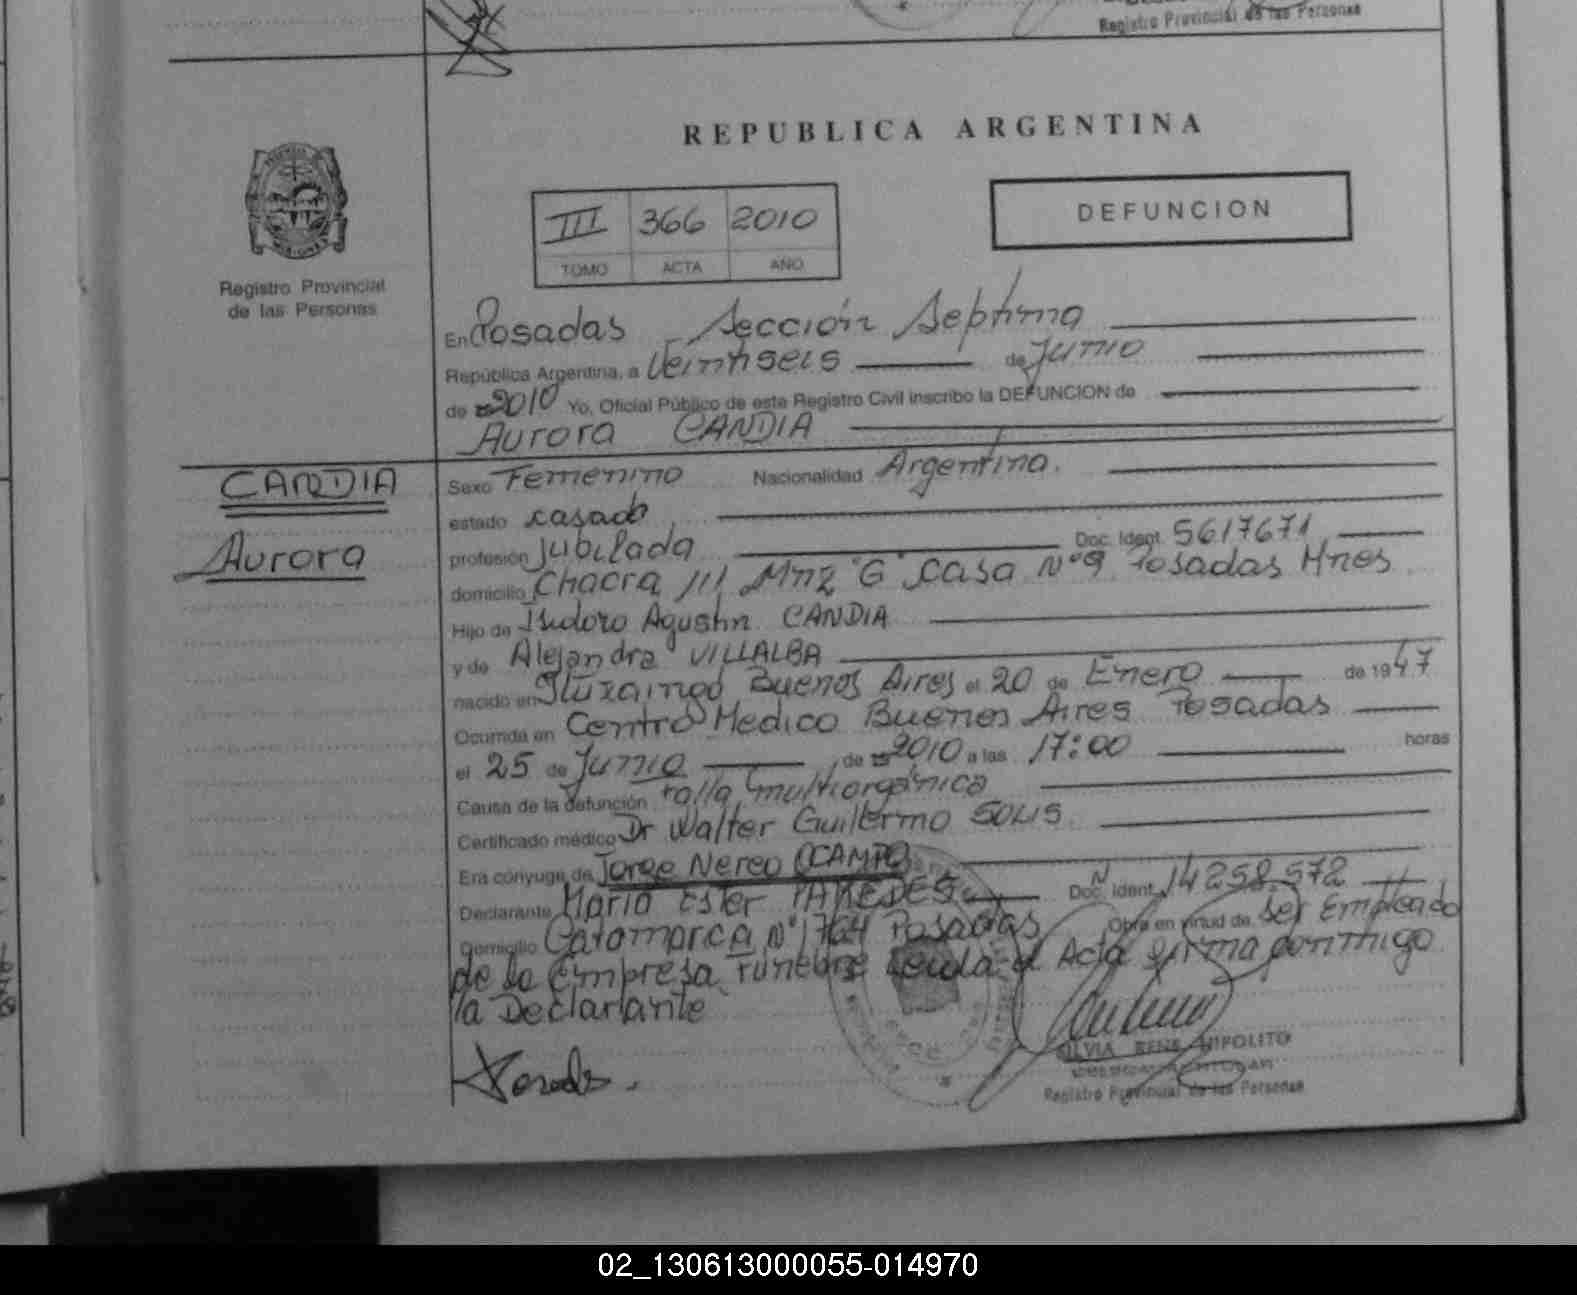 Registro Provincial de las Personas
REPUBLICA ARGENTINA
III 366 2010
TOMO ACTA AÑO
DEFUNCION
Registro Provincial
de las Personas
En Posadas Sección Septima
República Argentina, a Veintiseis de Junio
de 2010 Yo, Oficial Público de este Registro Civil inscribo la DEFUNCION de
Aurora CANDIA
CANDIA
Aurora
Sexo Femenino Nacionalidad Argentina.
estado casado
profesión Jubilada Doc. Ident. 5617671
domicilio Chacra 111 Mnz "G" Casa N°9 Posadas Mnes
Hijo de Isidoro Agustin CANDIA
y de Alejandra VILLALBA
nacido en Ituzaingó Buenos Aires el 20 de Enero de 1947
Ocurrida en Centro Medico Buenos Aires Posadas
el 25 de Junio de 2010 a las 17:00 horas
Causa de la defunción falla multiorgánica
Certificado médico Dr Walter Guillermo SOLIS
Era cónyuge de Jorge Nereo OCAMPO
Declarante Maria Ester PAREDES Doc. Ident. N 14258.572
Domicilio Catamarca N° 1764 Posadas Obra en virtud de ser Empleado
de la Empresa Funebre Leida el Acta firma conmigo
la Declarante
SILVIA RENE HIPOLITO
Registro Provincial de las Personas
02_130613000055-014970